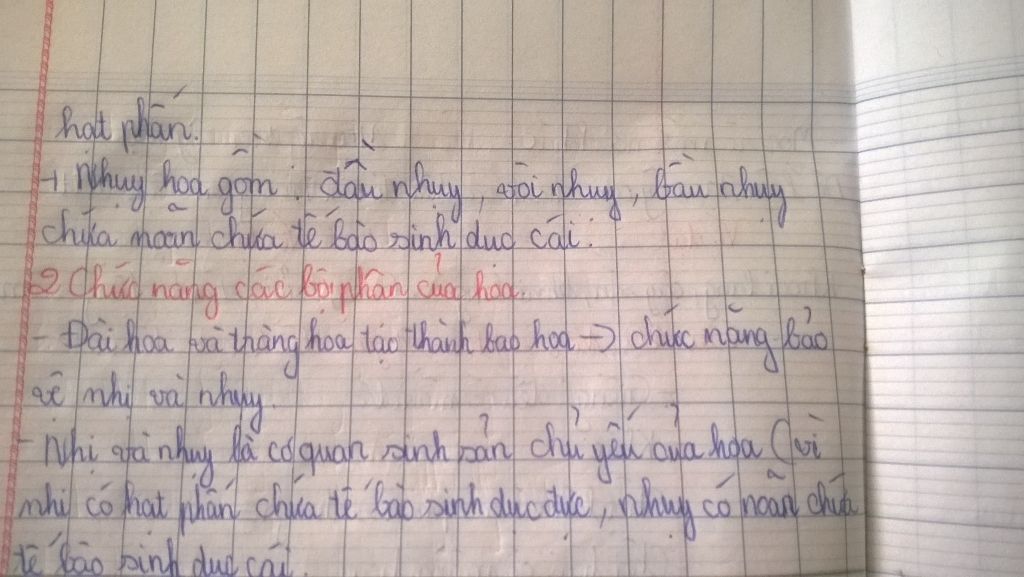 hạt phấn.
+ Nhụy hoa gồm: đầu nhụy, vòi nhụy, bầu nhụy
chứa noãn chứa tế bào sinh dục cái.
2 Chức năng các bộ phận của hoa.
- Đài hoa và tràng hoa tạo thành bao hoa → chức năng bảo
vệ nhị và nhụy.
- Nhị và nhụy là cơ quan sinh sản chủ yếu của hoa (vì
nhị có hạt phấn chứa tế bào sinh dục đực, nhụy có noãn chứa
tế bào sinh dục cái.